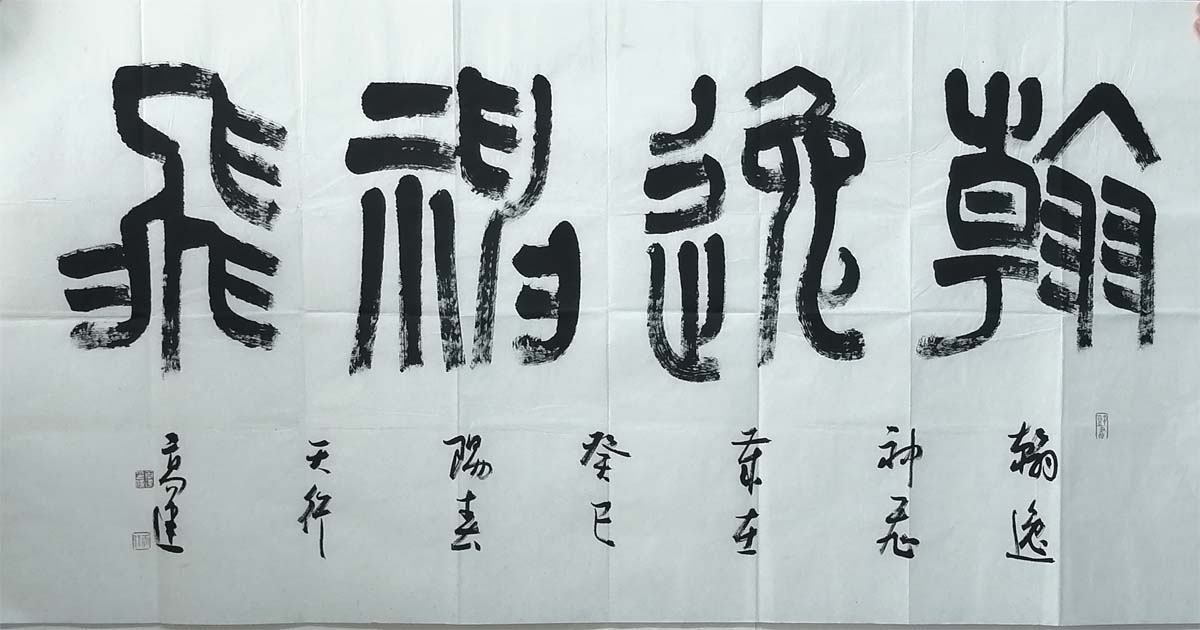 翰逸神飛
翰逸
神飛
歲在
癸巳
陽春
天行
高建